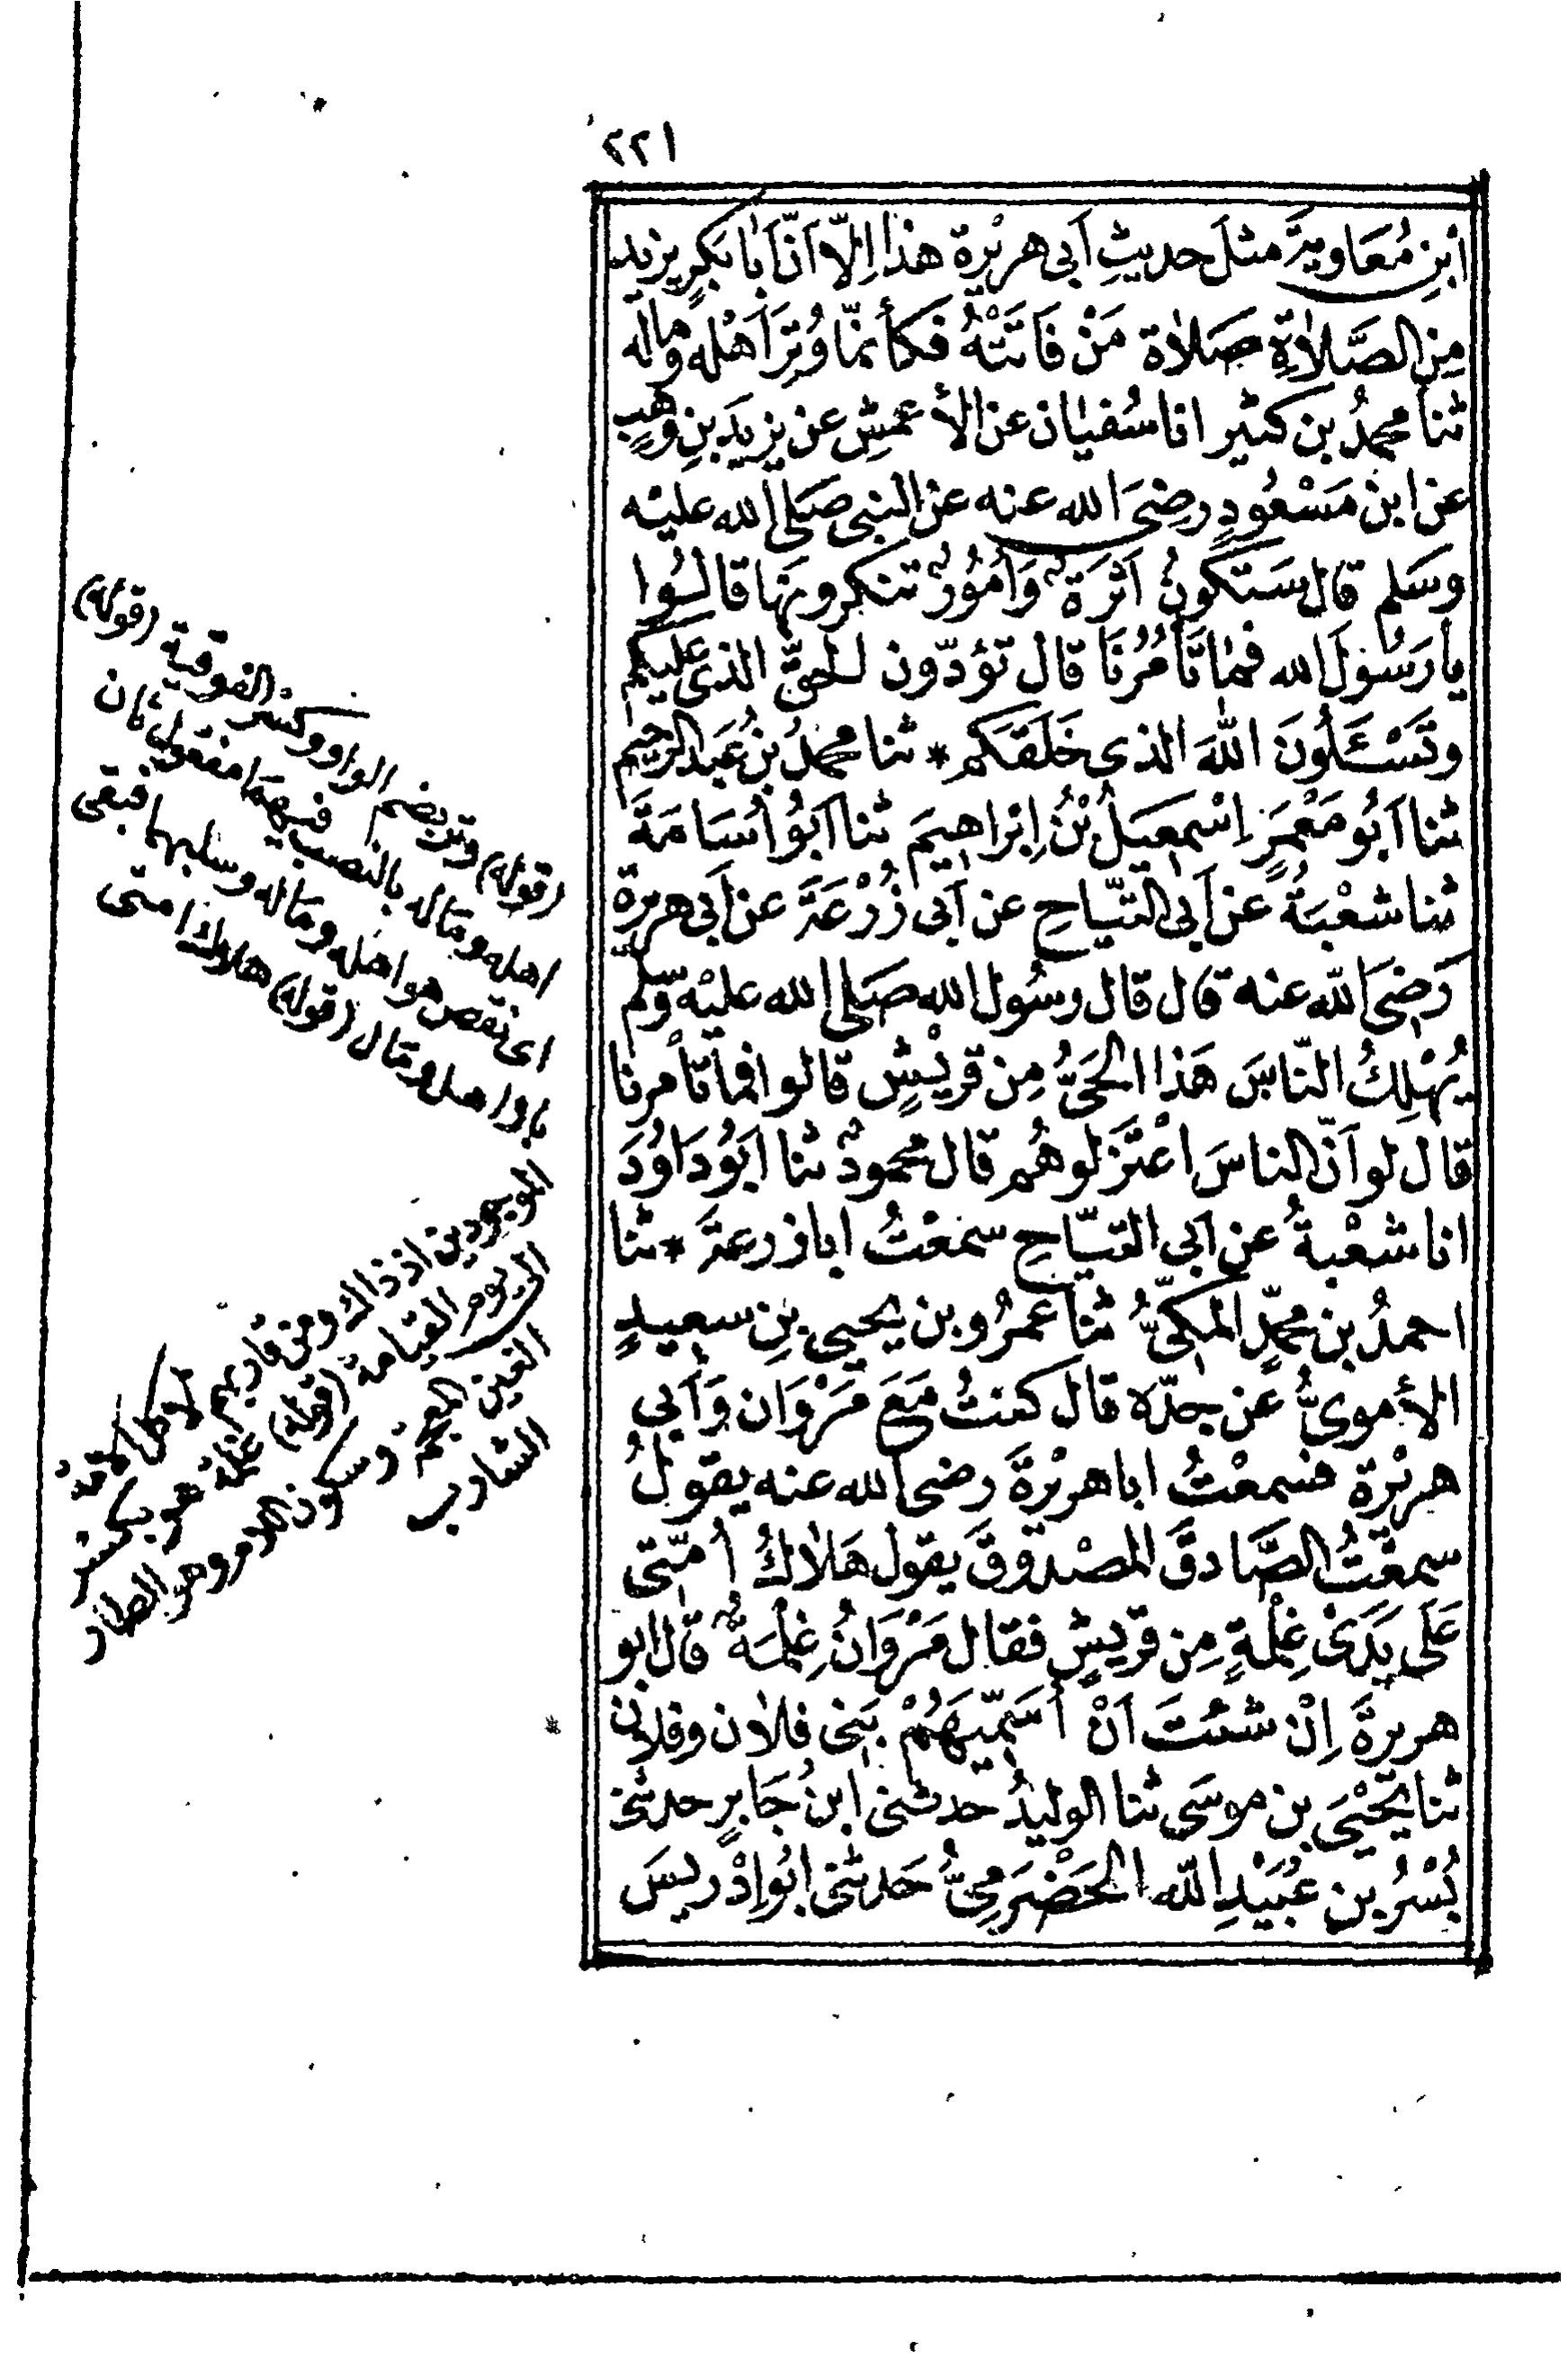 ٢٢١
ابْنِ مُعَاوِيَةَ مثلَ حديثِ اَبى هريْرة هذا اِلّا اَنّ اَبا بَكرٍ يزيد
مِنَ الصَّلاٰةِ صَلاٰة مَنْ فَاتَتْهُ فكأنمّا وُتِرَ اَهْله وماله
ثنا محمدُ بن كثير انا سُفيٰان عن الأعمشِ عن يزيدَ بنِ وهبٍ
عن ابن مَسْعُودٍ رضىَ الله عنه عن النبى صَلى الله عليْه
وسَلم قال سَتكونُ اَثَرَةٌ وَاُمُوُرٌ تنكرونهَا قالوُا
يا رَسُولَ الله فما تَأمُرُنَا قال تؤدّون الحقَّ الذى عليكم
وتَسْئَلُونَ اللّهَ الذى خَلَقكم * ثنا محمدُ بنُ عَبد الرّحيم
ثنا اَبُو مَعْمَرٍ اِسْمعيلُ بْنُ اِبْراهيمَ ثنا اَبُو اُسَامَةَ
ثنا شعْبَةُ عن اَبى التيّاحِ عن اَبى زُرْعَةَ عن اَبى هريرة
رَضىَ اللّه عنه قال قال رسُول الله صَلى الله عليْه وسلّم
يُهْلِكُ النّاسَ هَذا الحَىُّ مِن قريْشٍ قالوا فما تأمرنا
قال لو اَنّ الناسَ اعْتَزلوهُم قال محمودٌ ثنا اَبوُ دَاوُدَ
انا شعْبةُ عن اَبى التيّاحِ سمعْتُ ابا زرعةَ * ثنا
احمدُ بن محمّدٍ المكىُّ ثنا عمرُو بن يحيى بنِ سعيدٍ
الأموىُّ عن جدّه قال كنتُ مَعَ مَرْوَان وَاَبى
هريْرة فسمعْتُ ابا هريْرةَ رضى الله عنه يقولُ
سمعْتُ الصَّادقَ المصْدوقَ يقول هَلاٰكُ اُمّتى
عَلَى يَدَىْ غِلْمَةٍ مِن قريشٍ فقال مَرْوَانُ غِلْمَةٌ قال ابو
هريرةَ اِنْ شئتَ اَنْ اُسَمّيَهُمْ بَنى فلاٰن وفلان
ثنا يَحْيَى بن موسَى ثنا الوليدُ حدثنى ابنُ جَابرٍ حدثنى
بُسْرُ بن عُبَيْدِ اللّه الحَضْرَمِىُّ حَدثنى ابُو اِدْريسَ
(قوله) وتر بضم الواو وكسر الفوقية (قوله)
اهله وماله بالنصب فيهما مفعول ثان
اى نقص هو اهله وماله وسلبهما فبقى
بلا اهل ومال (قوله) هلاك امتى
الموجودين اذ ذاك ومن قاربهم لا كل الامة
الى يوم القيامة (قوله) غلمة هو بكسر
الغين المعجمة وسكون اللام وهو الطار
الشارب